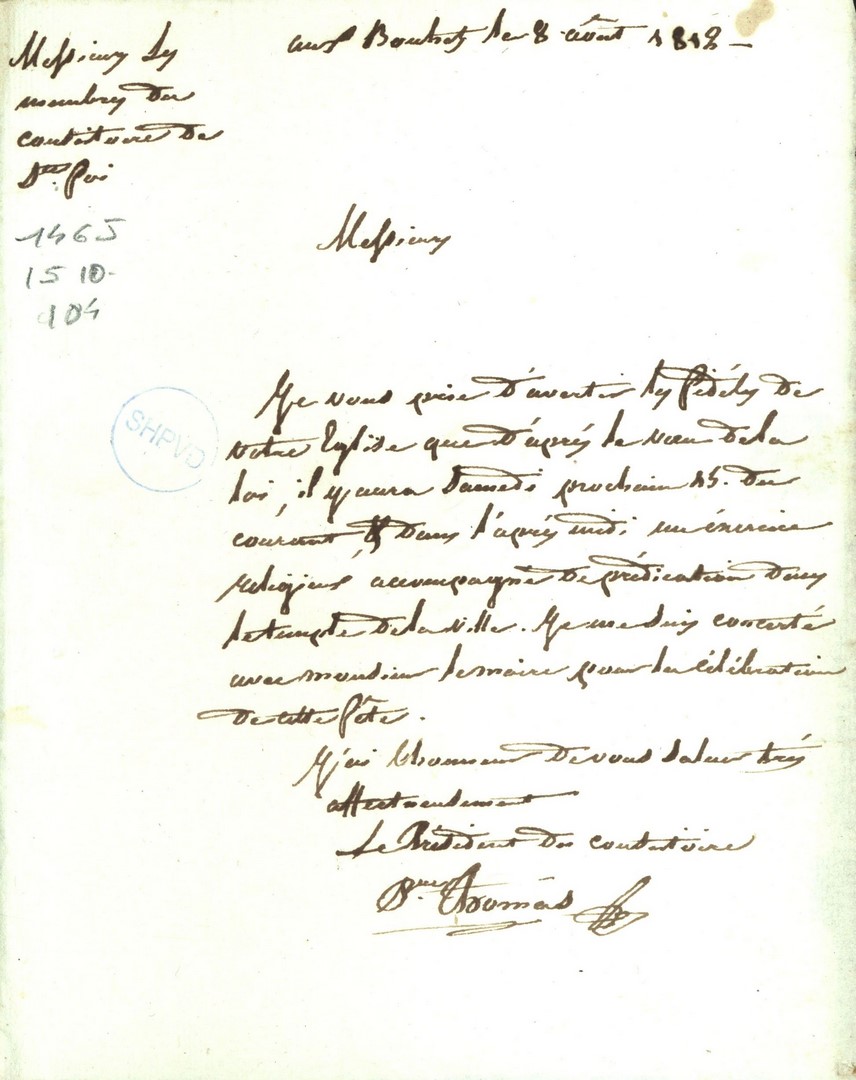 aux Bouhets le 8 août 1812 -
Messieurs Les
membres du
consistoire de
Ste. foi
1465
1510-
104
SHPVD
Messieurs
Je vous prie d'avertir les fidéles de
votre Eglise que d'après le vœu de la
loi, il y aura Samedi prochain 15. du
courant dans l'après midi un éxercice
religieux accompagné de prédication dans
le temple de la ville. Je me suis concerté
avec monsieur le maire pour la célébration
de cette fête.
J'ai l'honneur de vous saluer très
affectueusement
Le Président du consistoire
Thomas